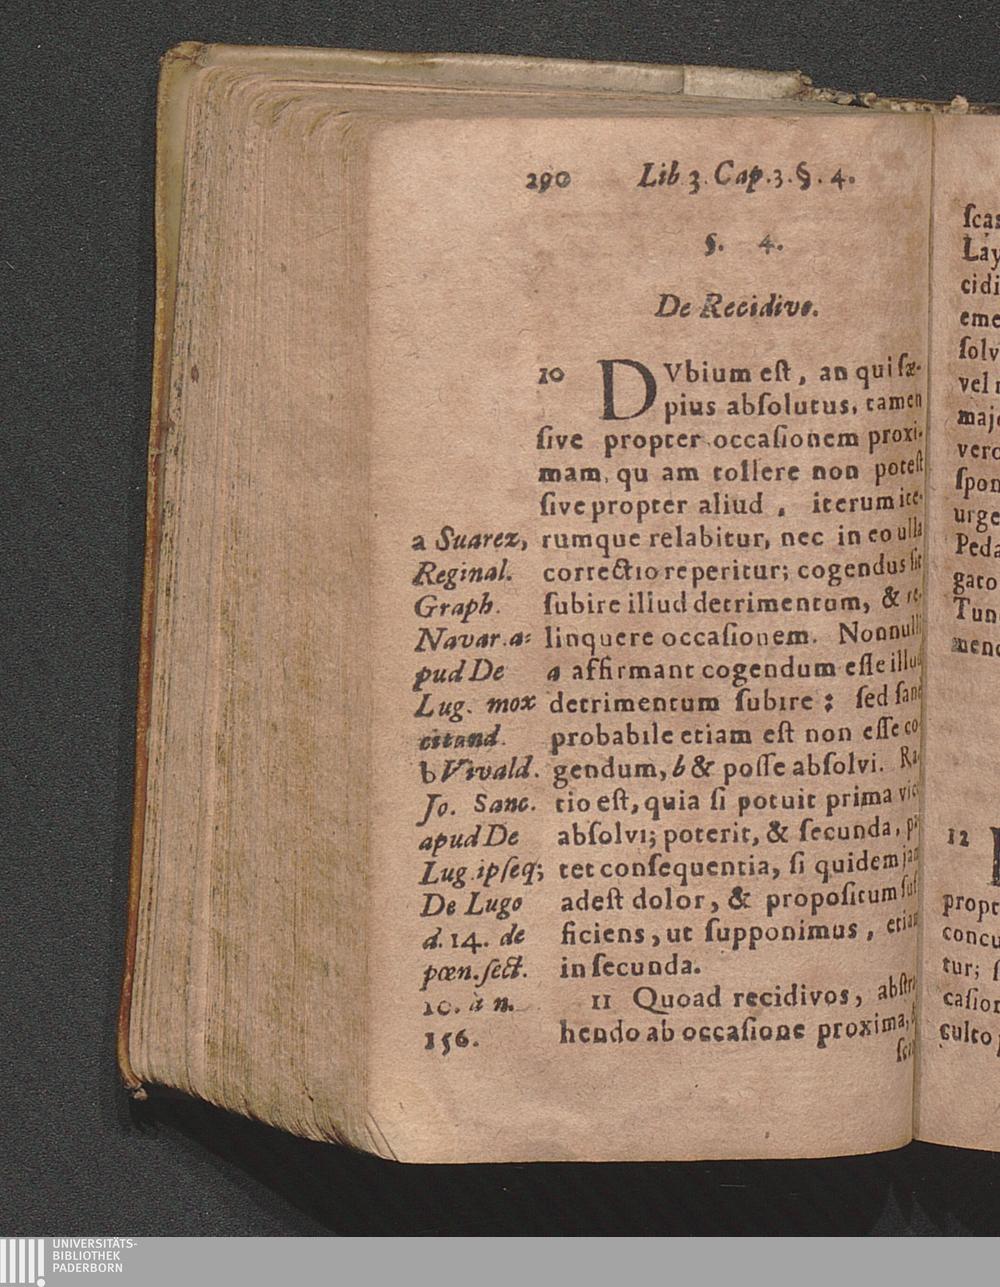 290 Lib 3. Cap. 3. §. 4.
§. 4.
De Recidivo.
10 DVbium est, an qui sæ-
pius absolutus, tamen
sive propter occasionem proxi-
mam, qu am tollere non potest
sive propter aliud, iterum ite-
rumque relabitur, nec in eo ulla
correctio reperitur; cogendus sit
subire illud detrimentum, & re-
linquere occasionem. Nonnulli
a affirmant cogendum esse illud
detrimentum subire: sed sane
probabile etiam est non esse co-
gendum, b & posse absolvi. Ra-
tio est, quia si potuit prima vice
absolvi; poterit, & secunda,
tet consequentia, si quidem jam
adest dolor, & propositum suf-
ficiens, ut supponimus, etiam
in secunda.
11 Quoad recidivos, abstra-
hendo ab occasione proxima,
a Suarez,
Reginal.
Graph.
Navar. a-
pud De
Lug. mox
citand.
b Vivald.
Jo. Sanc.
apud De
Lug. ipseq;
De Lugo
d. 14. de
pœn. sect.
10. à n.
156.
scas
Lay
cidi
eme
solv
vel
maj
vero
spon
urge
Peda
gato
Tun
mend
12
propt
concu
tur;
casion
culto
UNIVERSITÄTS-
BIBLIOTHEK
PADERBORN